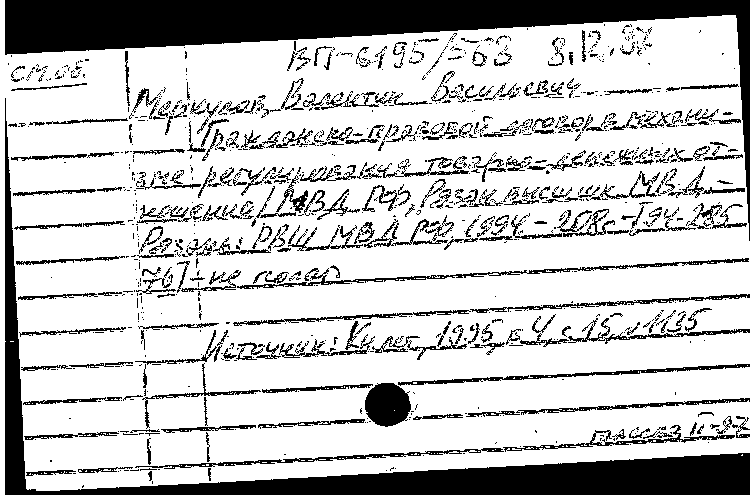 см.об.
ВП-6195/568 8.12.97
Меркулов, Валентин Васильевич
Гражданско-правовой договор в механи-
зме регулирования товарно-денежных от-
ношений / МВД РФ, Рязан высш шк МВД. -
Рязань: РВШ МВД РФ, 1994 - 208с - [94-285
76] - не получ
Источник: Кн лет, 1995, в 4, с 15, 1135
II-97